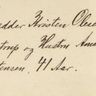 edder Kristen Olse
trup og Hustru Ane
tensen, 41 Aar.